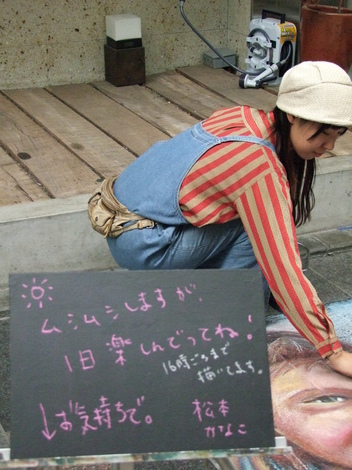 ムシムシしますが、
1日楽しんでってね!
16時ごろまで
描いてます。
↓お気持ちで。
松本
かなこ